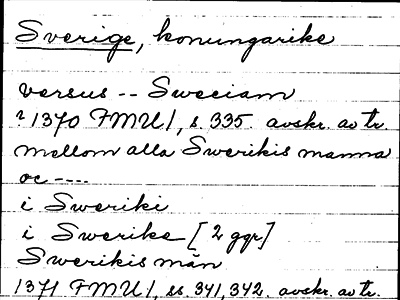 Sverige, konungarike
versus -- Sweciam
? 1370 FMU I, s. 335. avskr. av tr.
mellom alla Swerikis manna
oc ----
i Sweriki
i Swerike [2 ggr]
Swerikis män
1371 FMU I, ss. 341, 342. avskr. av tr.